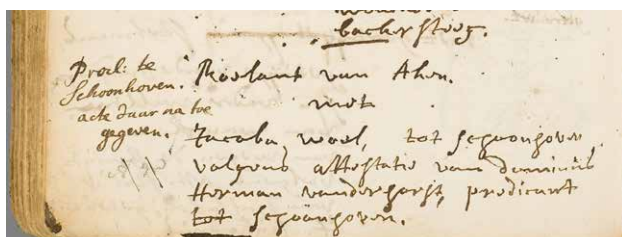 backersteeg.
Procl: te
Schoonhoven.
acte daar na toe
gegeven.
Roelant van Aken.
met
Jacoba wael, tot schoonhoven,
volgens attestatie van dominus
Herman vanderhorst, predicant
tot schoonhoven.